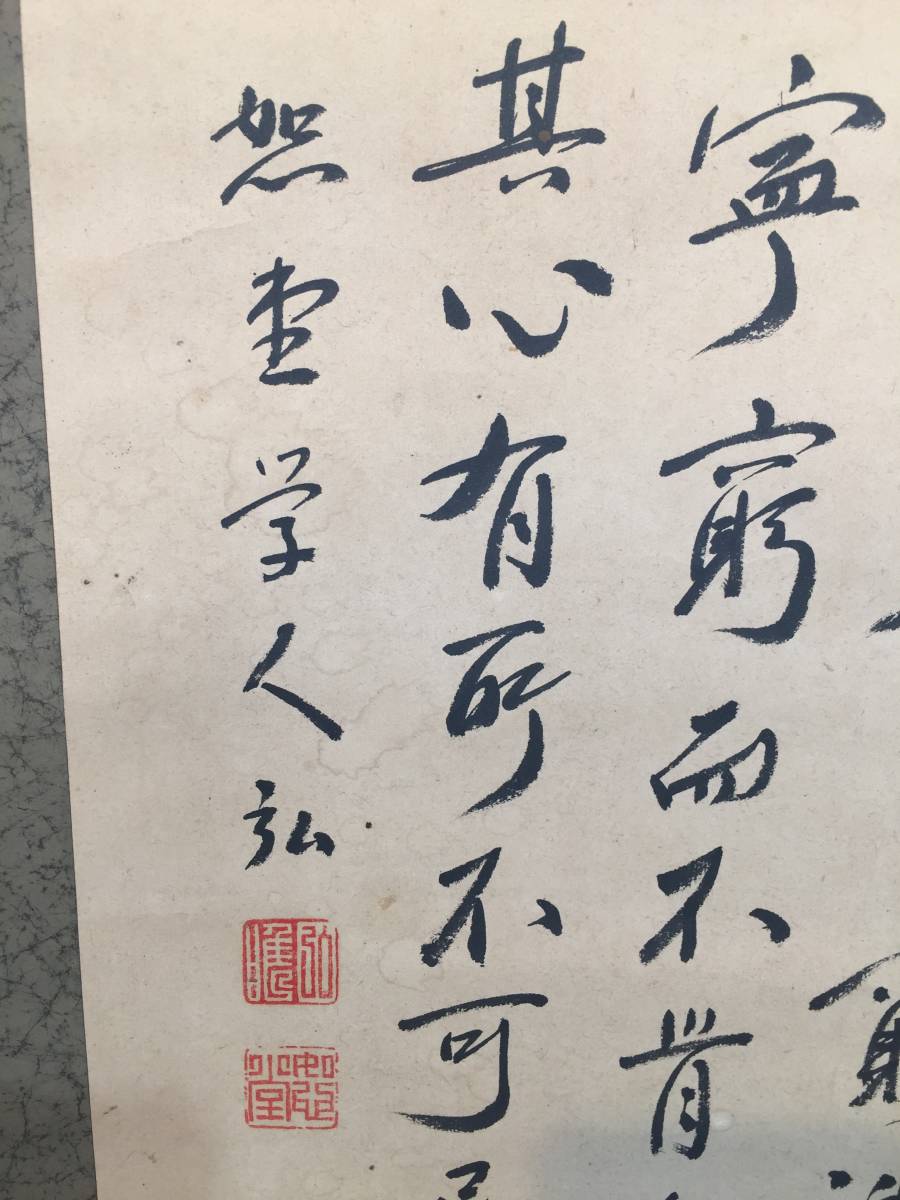 寧窮而不肯
其心有所不可
恕堂学人弘
恕堂